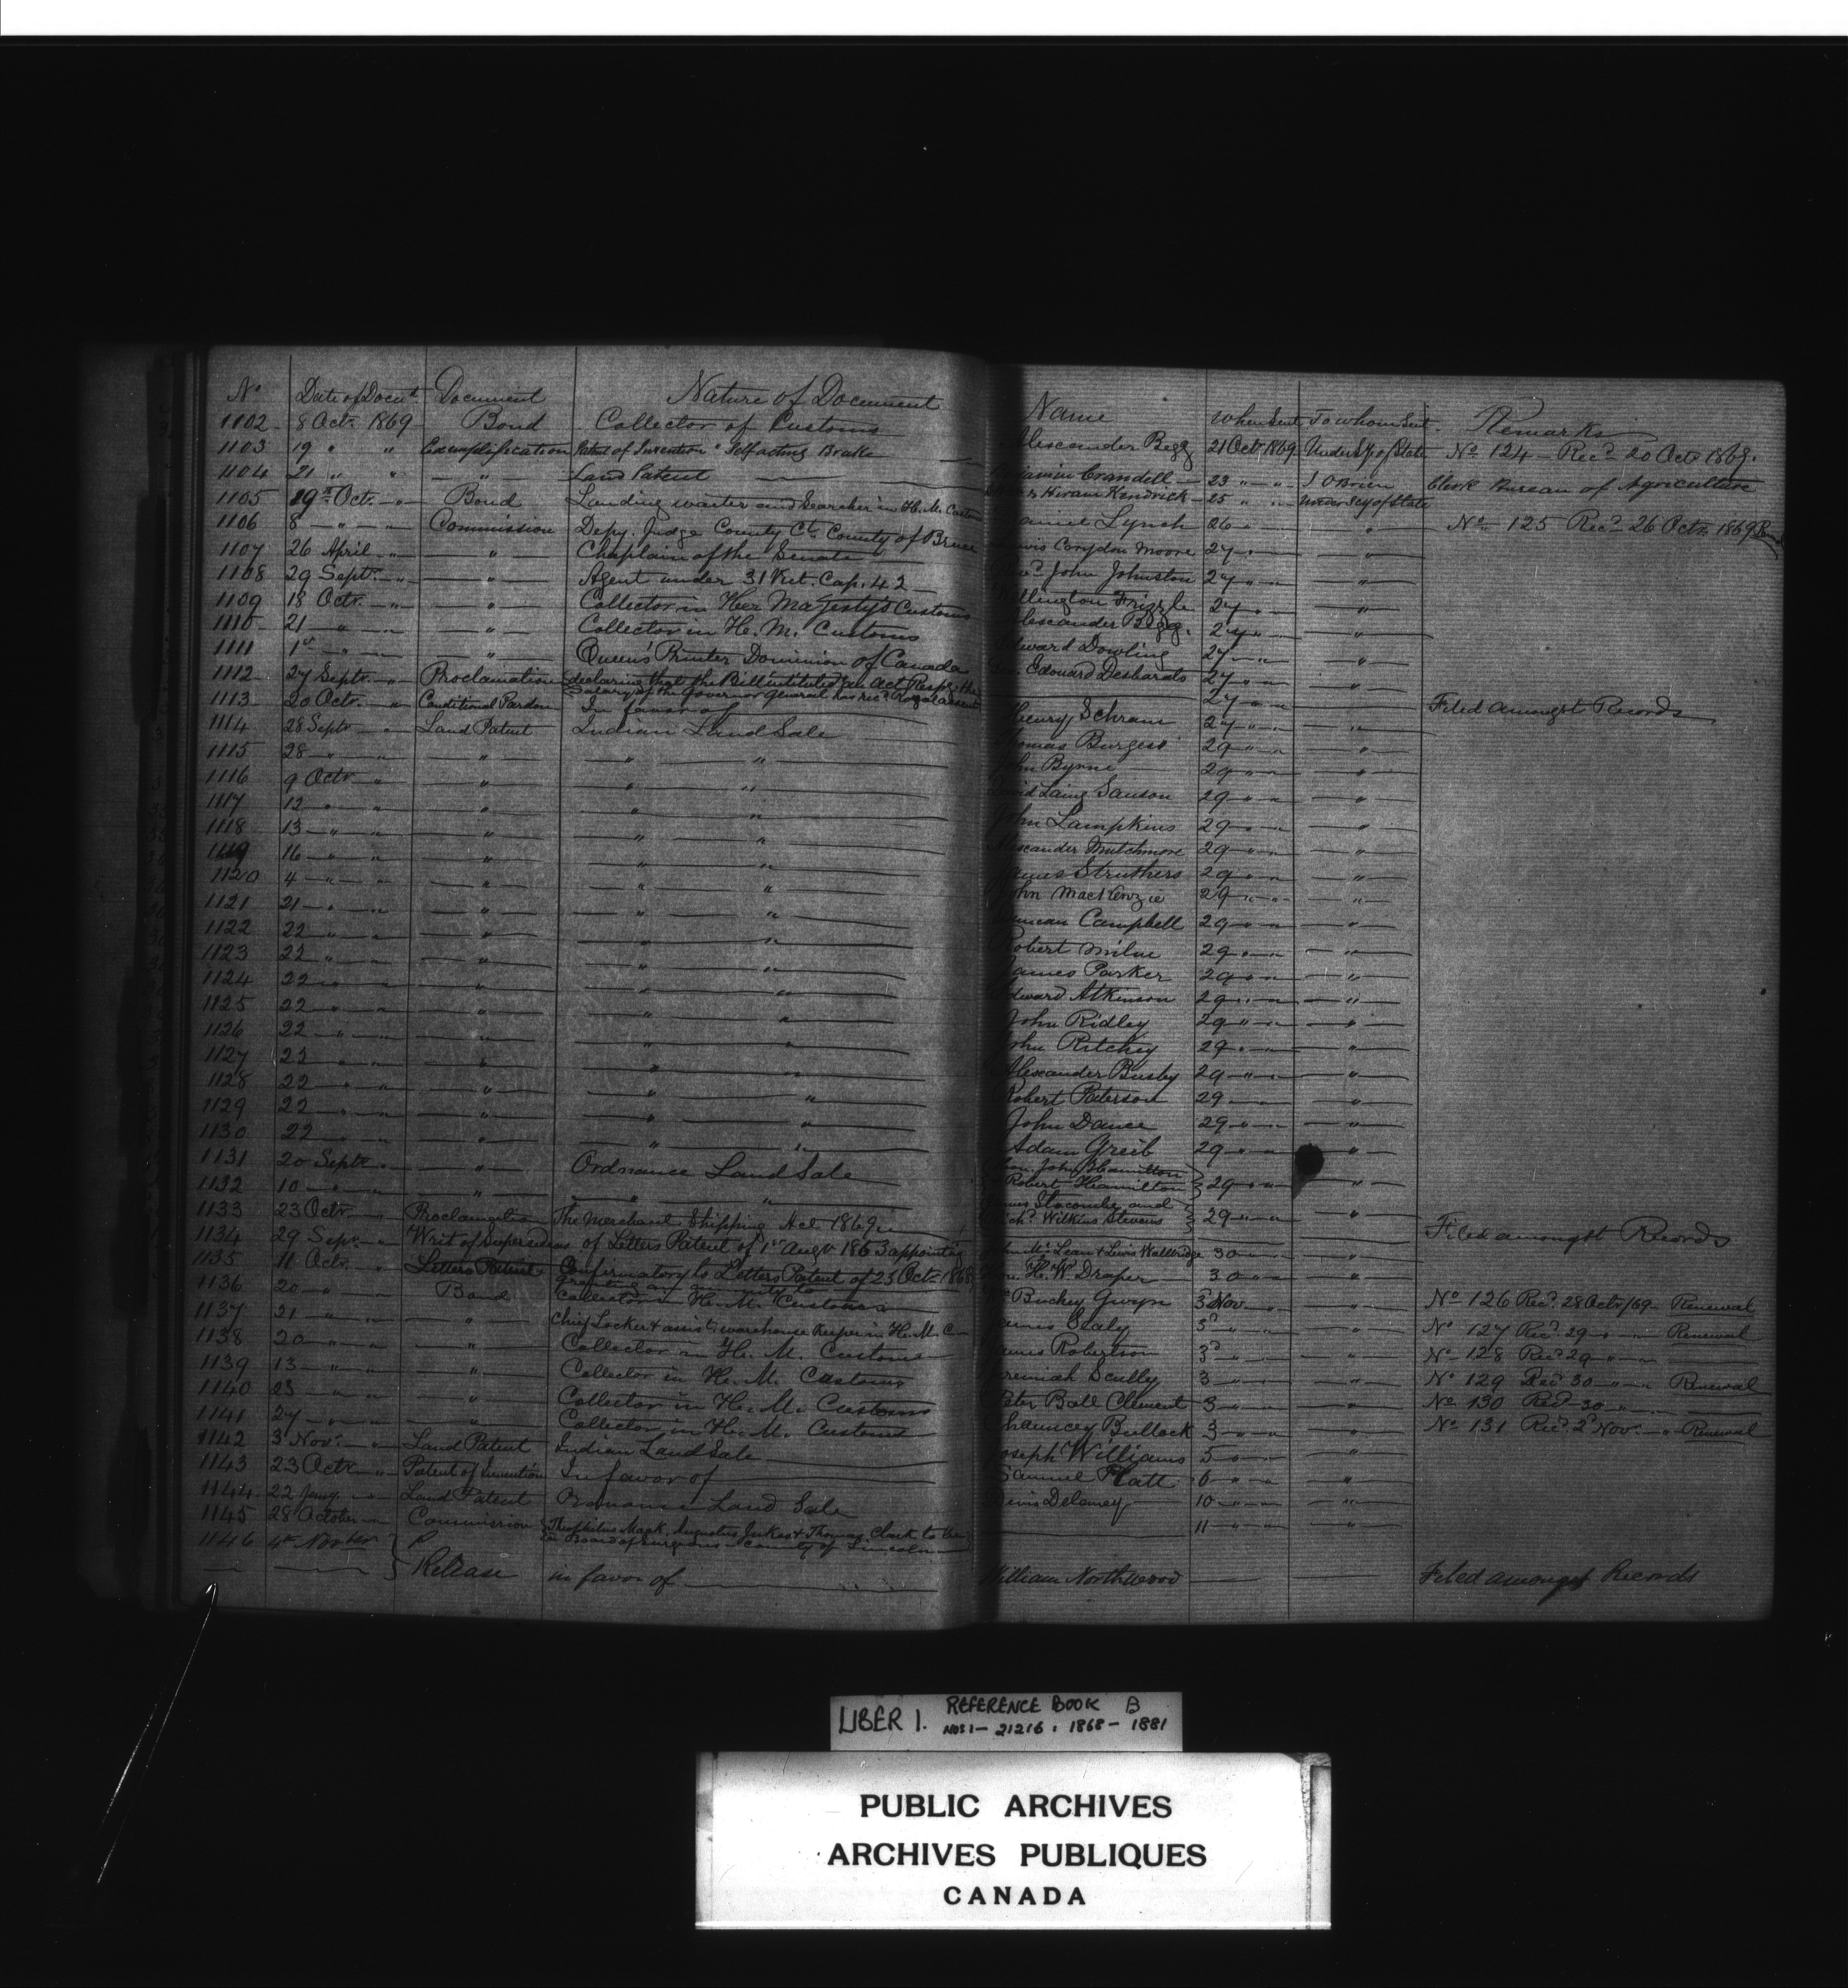 No Date of Docut Document Nature of Document Name When Sent To whom Sent Remarks
1102 8 Octr 1869 Bond Collector of Customs Alexander Begg 21 Octr 1869 Under Sy of State No 124 – Recd 20 Octr 1869.
1103 19 " " Exemplification Patent of Invention "Self acting Brake Benjamin Crandell 23 " " J O'Brien Clerk Bureau of Agriculture
1104 21 " " " Land Patent Hiram Kendrick 25 " " Under Scy of State
1105 19th Oct. " Bond Landing waiter and Searcher in H. M. Customs Daniel Lynch 26 " " No 125 Recd 26 Octr 1869
1106 8 " " Commission Depy. Judge County Ct. County of Bruce Lewis Corydon Moore 27 " "
1107 26 April " " Chaplain of the Senate John Johnston 27 " " "
1108 29 Septr " " Agent under 31 Vict. Cap. 42 Wellington Frizzle 27 " " "
1109 18 Octr. " " Collector in Her Majesty's Customs Alexander Begg. 27 " " "
1110 21 " " " Collector in H. M. Customs Edward Dowling 27 " " "
1111 1st " " " Queen's Printer Dominion of Canada Edouard Desbarats 27 " " "
1112 27 Septr " Proclamation declaring that the Bill intituled "an Act Respg the
Salary of the Governor General has recd Royal assent 27 " " " Filed amongst Records
1113 20 Octr. " Conditional Pardon In favor of Henry Schram 27 " " "
1114 28 Septr " Land Patent Indian Land Sale Thomas Burgess 29 " " "
1115 28 " " " " " John Byrne 29 " " "
1116 9 Octr " " " " David Laing Sanson 29 " " "
1117 12 " " " " " John Lampkins 29 " " "
1118 13 " " " " " Alexander Mutchmore 29 " " "
1119 16 " " " " " James Struthers 29 " " "
1120 4 " " " " " John MacKenzie 29 " " "
1121 21 " " " " " Duncan Campbell 29 " " "
1122 22 " " " " " Robert Milne 29 " " "
1123 22 " " " " " James Parker 29 " " "
1124 22 " " " " " Edward Atkinson 29 " " "
1125 22 " " " " " John Ridley 29 " " "
1126 22 " " " " " John Ritchey 29 " " "
1127 23 " " " " " Alexander Busby 29 " " "
1128 22 " " " " " Robert Paterson 29 " "
1129 22 " " " " " John Dance 29 " " "
1130 22 " " " " " Adam Greib 29 " " "
1131 20 Septr " " Ordnance Land Sale Hon. John Hamilton
Robert Hamilton 29 " " "
1132 10 " " " " " Slocombe and
Wilkins Stevens 29 " " "
1133 23 Octr " Proclamation The Merchant Shipping Act 1869 Filed amongst Records
1134 29 Sepr " Writ of Supersedeas of Letters Patent of 1st Augt 1863 appointing John McLean & Lewis Wallbridge 30 " "
1135 11 Octr. " Letters Patent Confirmatory to Letters Patent of 23 Octr 1868
granting an annuity to Hon. H. W. Draper 30 " " "
1136 20 " " Bond Collector in H. M. Customs Buckey Gwyn 3 Nov " " No 126 Recd 28 Octr/69 Renewal
1137 21 " " " Chief Locker & assist. warehouse Keeper in H. M. C James Sealy 3d " " " No 127 Recd 29 " " Renewal
1138 20 " " " Collector in H. M. Customs James Robertson 3d " " " No 128 Recd 29 " "
1139 13 " " " Collector in H. M. Customs Jeremiah Scully 3 " " " No 129 Recd 30 " " Renewal
1140 23 " " " Collector in H. M. Customs Peter Ball Clement 3 " " " No 130 Recd 30 " "
1141 27 " " " Collector in H. M. Customs Chauncey Bullock 3 " " " No 131 Recd 2d Nov. " Renewal
1142 3 Novr " Land Patent Indian Land Sale Joseph Williams 5 " " "
1143 23 Octr " Patent of Invention In favor of Samuel Platt 6 " " "
1144 22 Jany. " Land Patent Ordnance Land Sale Denis Delaney 10 " " "
1145 28 October " Commission Theophilus Mack, Augustus Jukes & Thomas Clark to be
a Board of Surgeons County of Lincoln 11 " " "
1146 4th Novber
Release in favor of William Northwood Filed amongst Records
LIBER 1. REFERENCE BOOK B
NOS 1 – 21216 : 1868 – 1881
PUBLIC ARCHIVES
ARCHIVES PUBLIQUES
CANADA